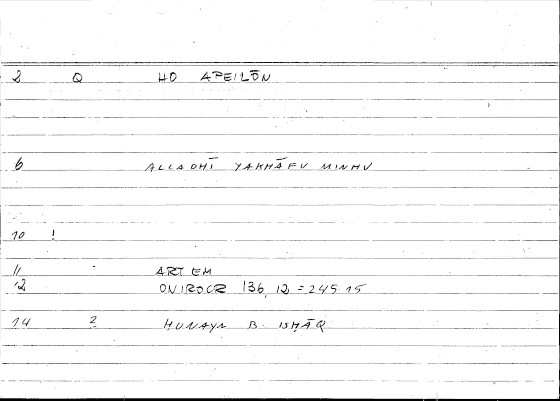 2 Q HO APEILŌN
6 ALLADHĪ YAKHĀFU MINHU
10 !
11 ARTEM
12 ONIROCR 136, 12 = 245 15
14 ? HUNAYN B. ISHĀQ